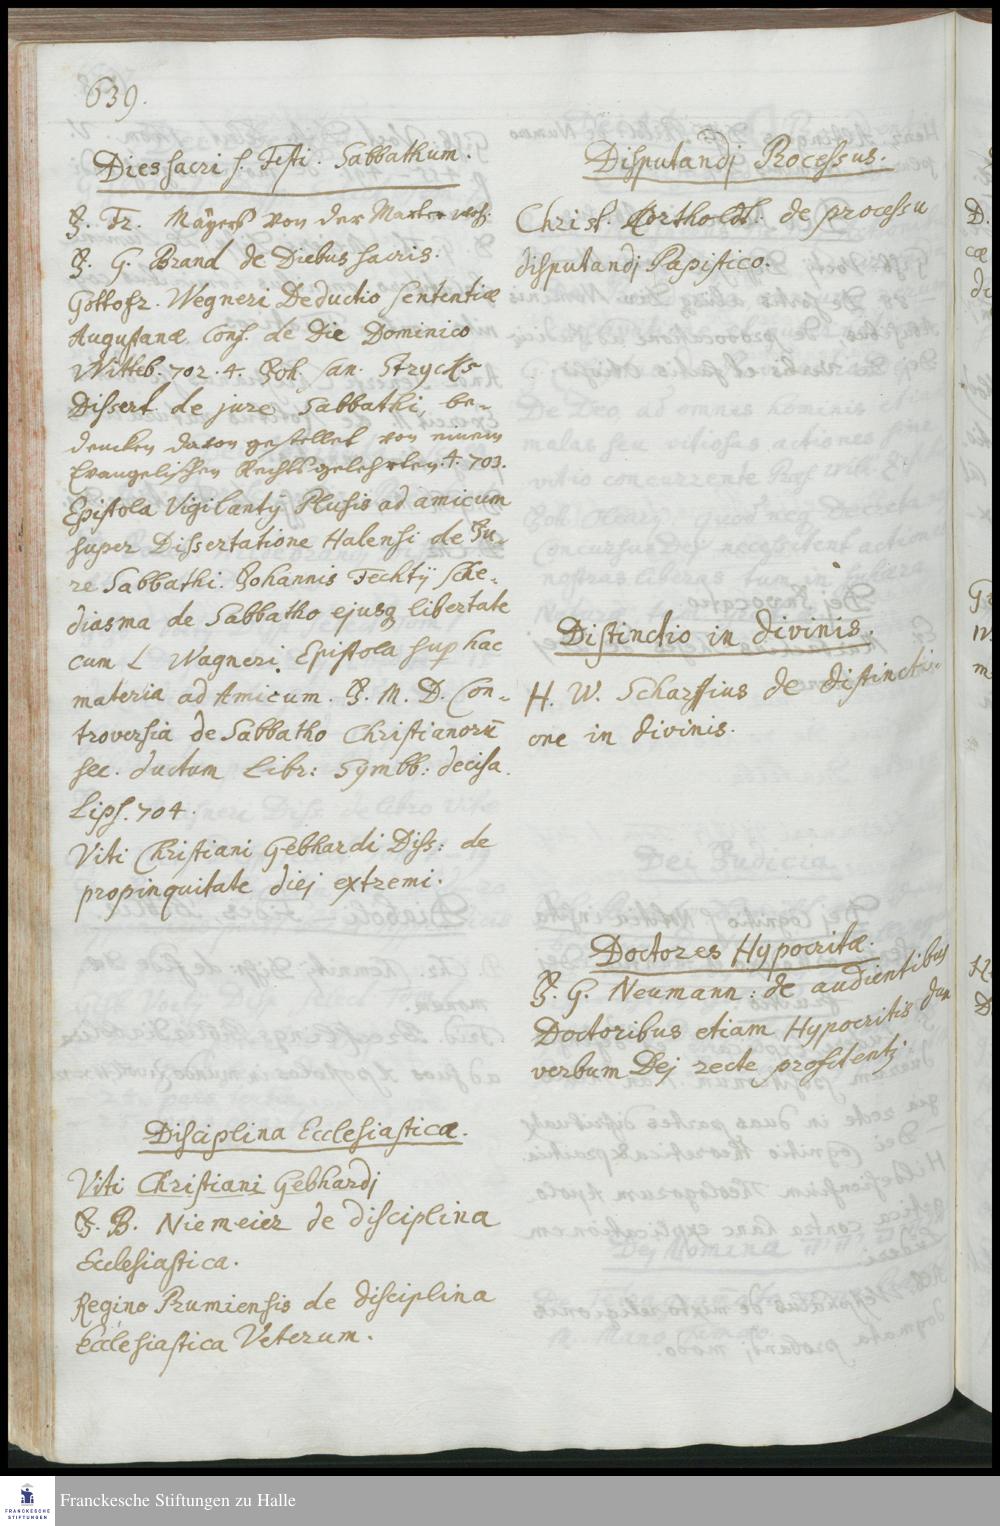 639.
Dies sacri s. Festi. Sabbathum.
J. Fr. Mayers von der Marter woch.
J. G. Brand de Diebus sacris.
Gottofr. Wegneri Deductio sententiæ
Augustanæ Conf. de Die Dominico
Witteb. 702. 4. Joh. San. Strycks
Dissert de jure Sabbathi, be-
dencken davon gestellet von einem
Evangelischen Rechts gelehrten. 4. 703.
Epistola Vigilantij Plusis ad amicum
super Dissertatione Halensi de Ju-
re Sabbathi. Johannis Fechtij Sche-
diasma de Sabbatho ejusq libertate
cum L Wagneri Epistola sup hac
materia ad Amicum. J. M. D. Con-
troversia de Sabbatho Christianorū
sec. ductum Libr: Symbb: decisa.
Lips. 704.
Viti Christiani Gebhardi Diss: de
propinquitate diej extremi.
Disciplina Ecclesiastica.
Viti Christiani Gebhardj
J. B. Niemeier de disciplina
Ecclesiastica.
Regino Prumiensis de disciplina
Ecclesiastica Veterum.
Disputandj Processus.
Christ. Kortholt. de processu
disputandj Papistico.
Distinctio in divinis.
H. W. Scharffius de distincti-
one in divinis.
Doctores Hypocritæ.
J. G. Neumann: de audientibus
Doctoribus etiam Hypocritis dum
verbum Dej recte profitentj.
Franckesche Stiftungen zu Halle
FRANCKESCHE
STIFTUNGEN